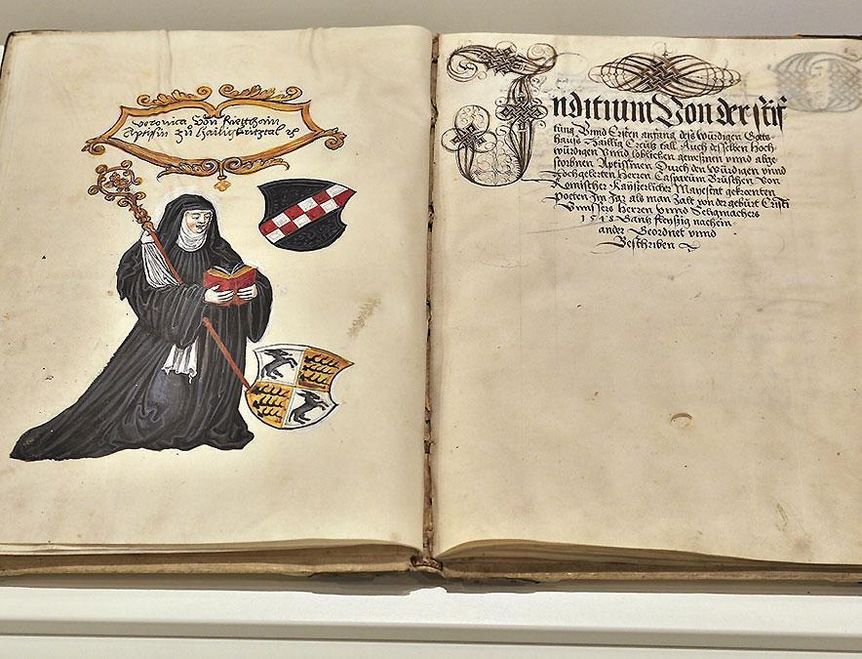 Veronica Von Riettheim
Aptissin zu Hailig Creutztal ꝛc
Inditium Von der stif
tung Vnnd Ersten anfang deß Würdigen Gotts
hauß Haillig Creutz tall Auch desselben Hoch
würdigen Vnnd loblichen gewesnen vnnd abge
storbnen Aptissinen Durch den Würdigen vnnd
Hochgelerten Herren Casparum Brüschen Von
Römischer Kayserlicher Mayestet gekrenten
Poeten Im Jar als man Zalt von der geburt Cristi
Vnnsers Herren vnnd Seligmachers
Gantz fleyssig nachein
ander Geordnet vnnd
Beschriben